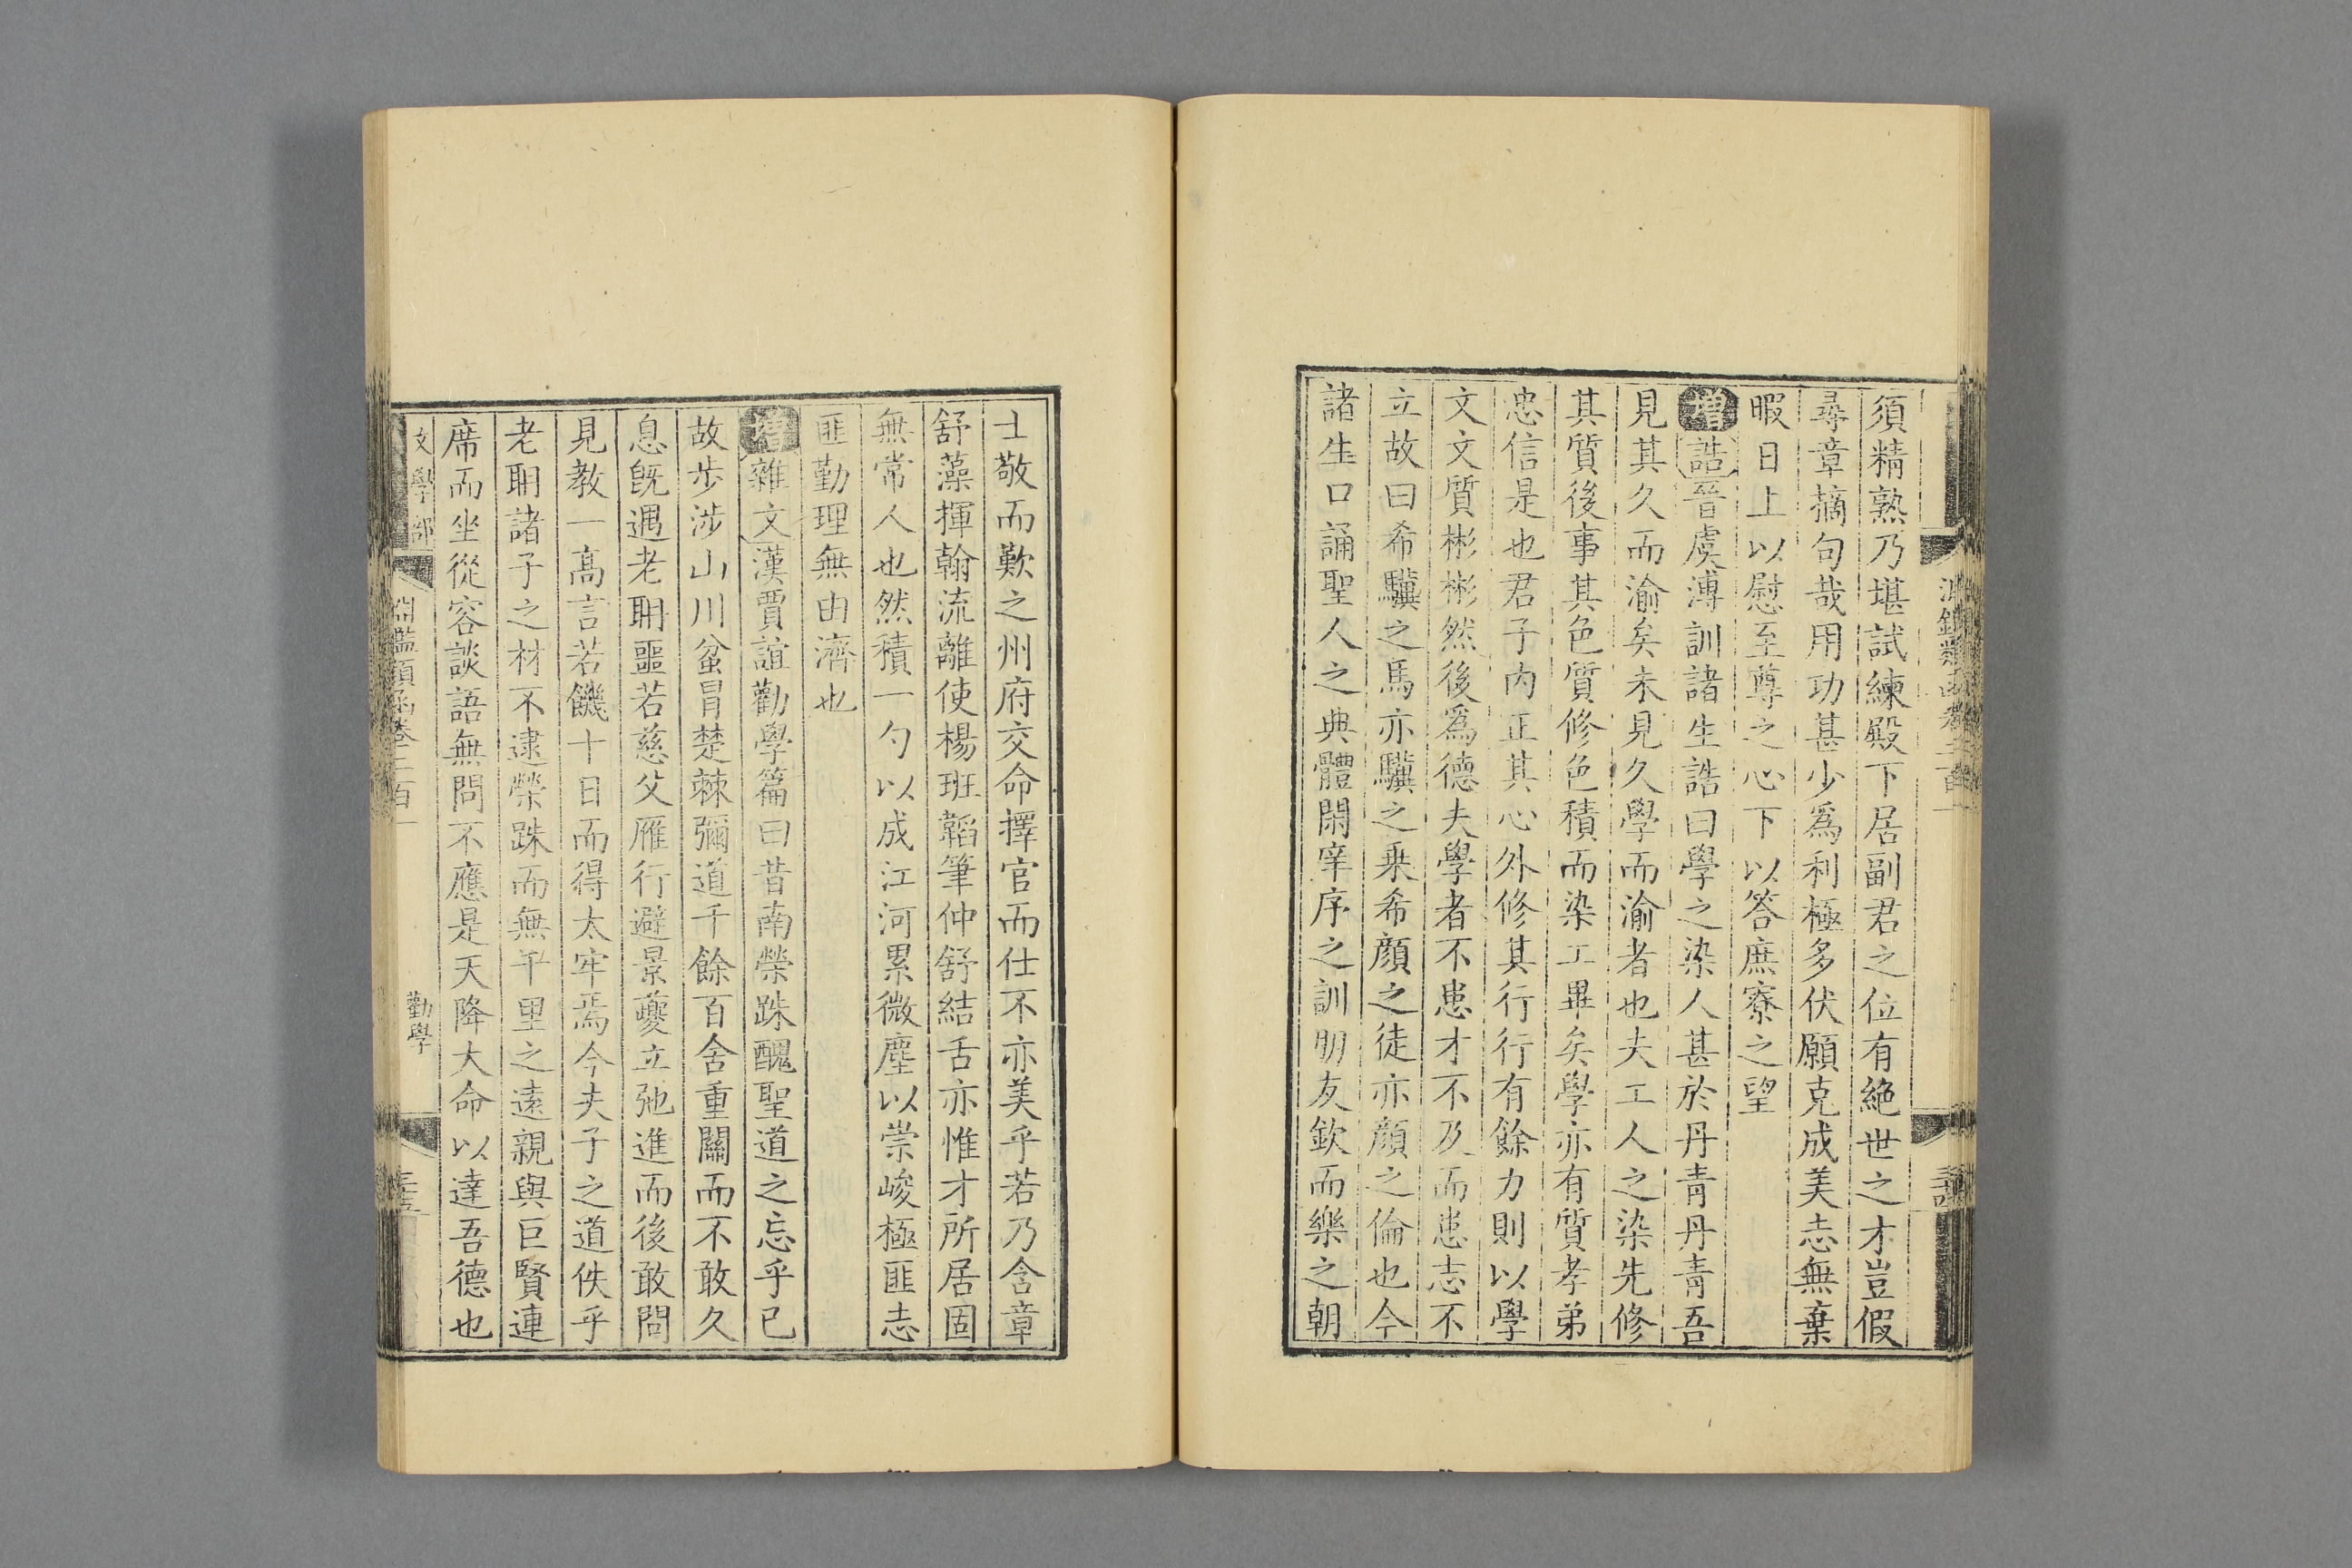 須精熟乃堪試練殿下居副君之位有絶世之才豈假
尋章摘句哉用功甚少爲利極多伏願克成美志無棄
暇日上以慰至尊之心下以答庶寮之望
增誥晉虞溥訓諸生誥曰學之染人甚於丹青丹青吾
見其久而渝矣未見久學而渝者也夫工人之染先修
其質後事其色質修色積而染工畢矣學亦有質孝弟
忠信是也君子內正其心外修其行行有餘力則以學
文文質彬彬然後爲德夫學者不患才不及而患志不
立故曰希驥之馬亦驥之乗希顔之徒亦顔之倫也今
諸生口誦聖人之典體閑庠序之訓朋友欽而樂之朝
士敬而歎之州府交命擇官而仕不亦美乎若乃含章
舒藻揮翰流離使楊班韜筆仲舒結舌亦惟才所居固
無常人也然積一勺以成江河累微塵以崇峻極匪志
匪勤理無由濟也
增雜文漢賈誼勸學篇曰昔南榮跦醜聖道之忘乎已
故步涉山川坌冒楚棘彌道千餘百舍重關而不敢久
息旣遇老聃噩若慈父雁行避景夔立弛進而後敢問
見教一高言若饑十日而得太牢焉今夫子之道佚乎
老聃諸子之材不逮榮跦而無千里之遠親與巨賢連
席而坐從容談語無問不應是天降大命以達吾德也
文學部
淵鑑類函卷二百一
勸學